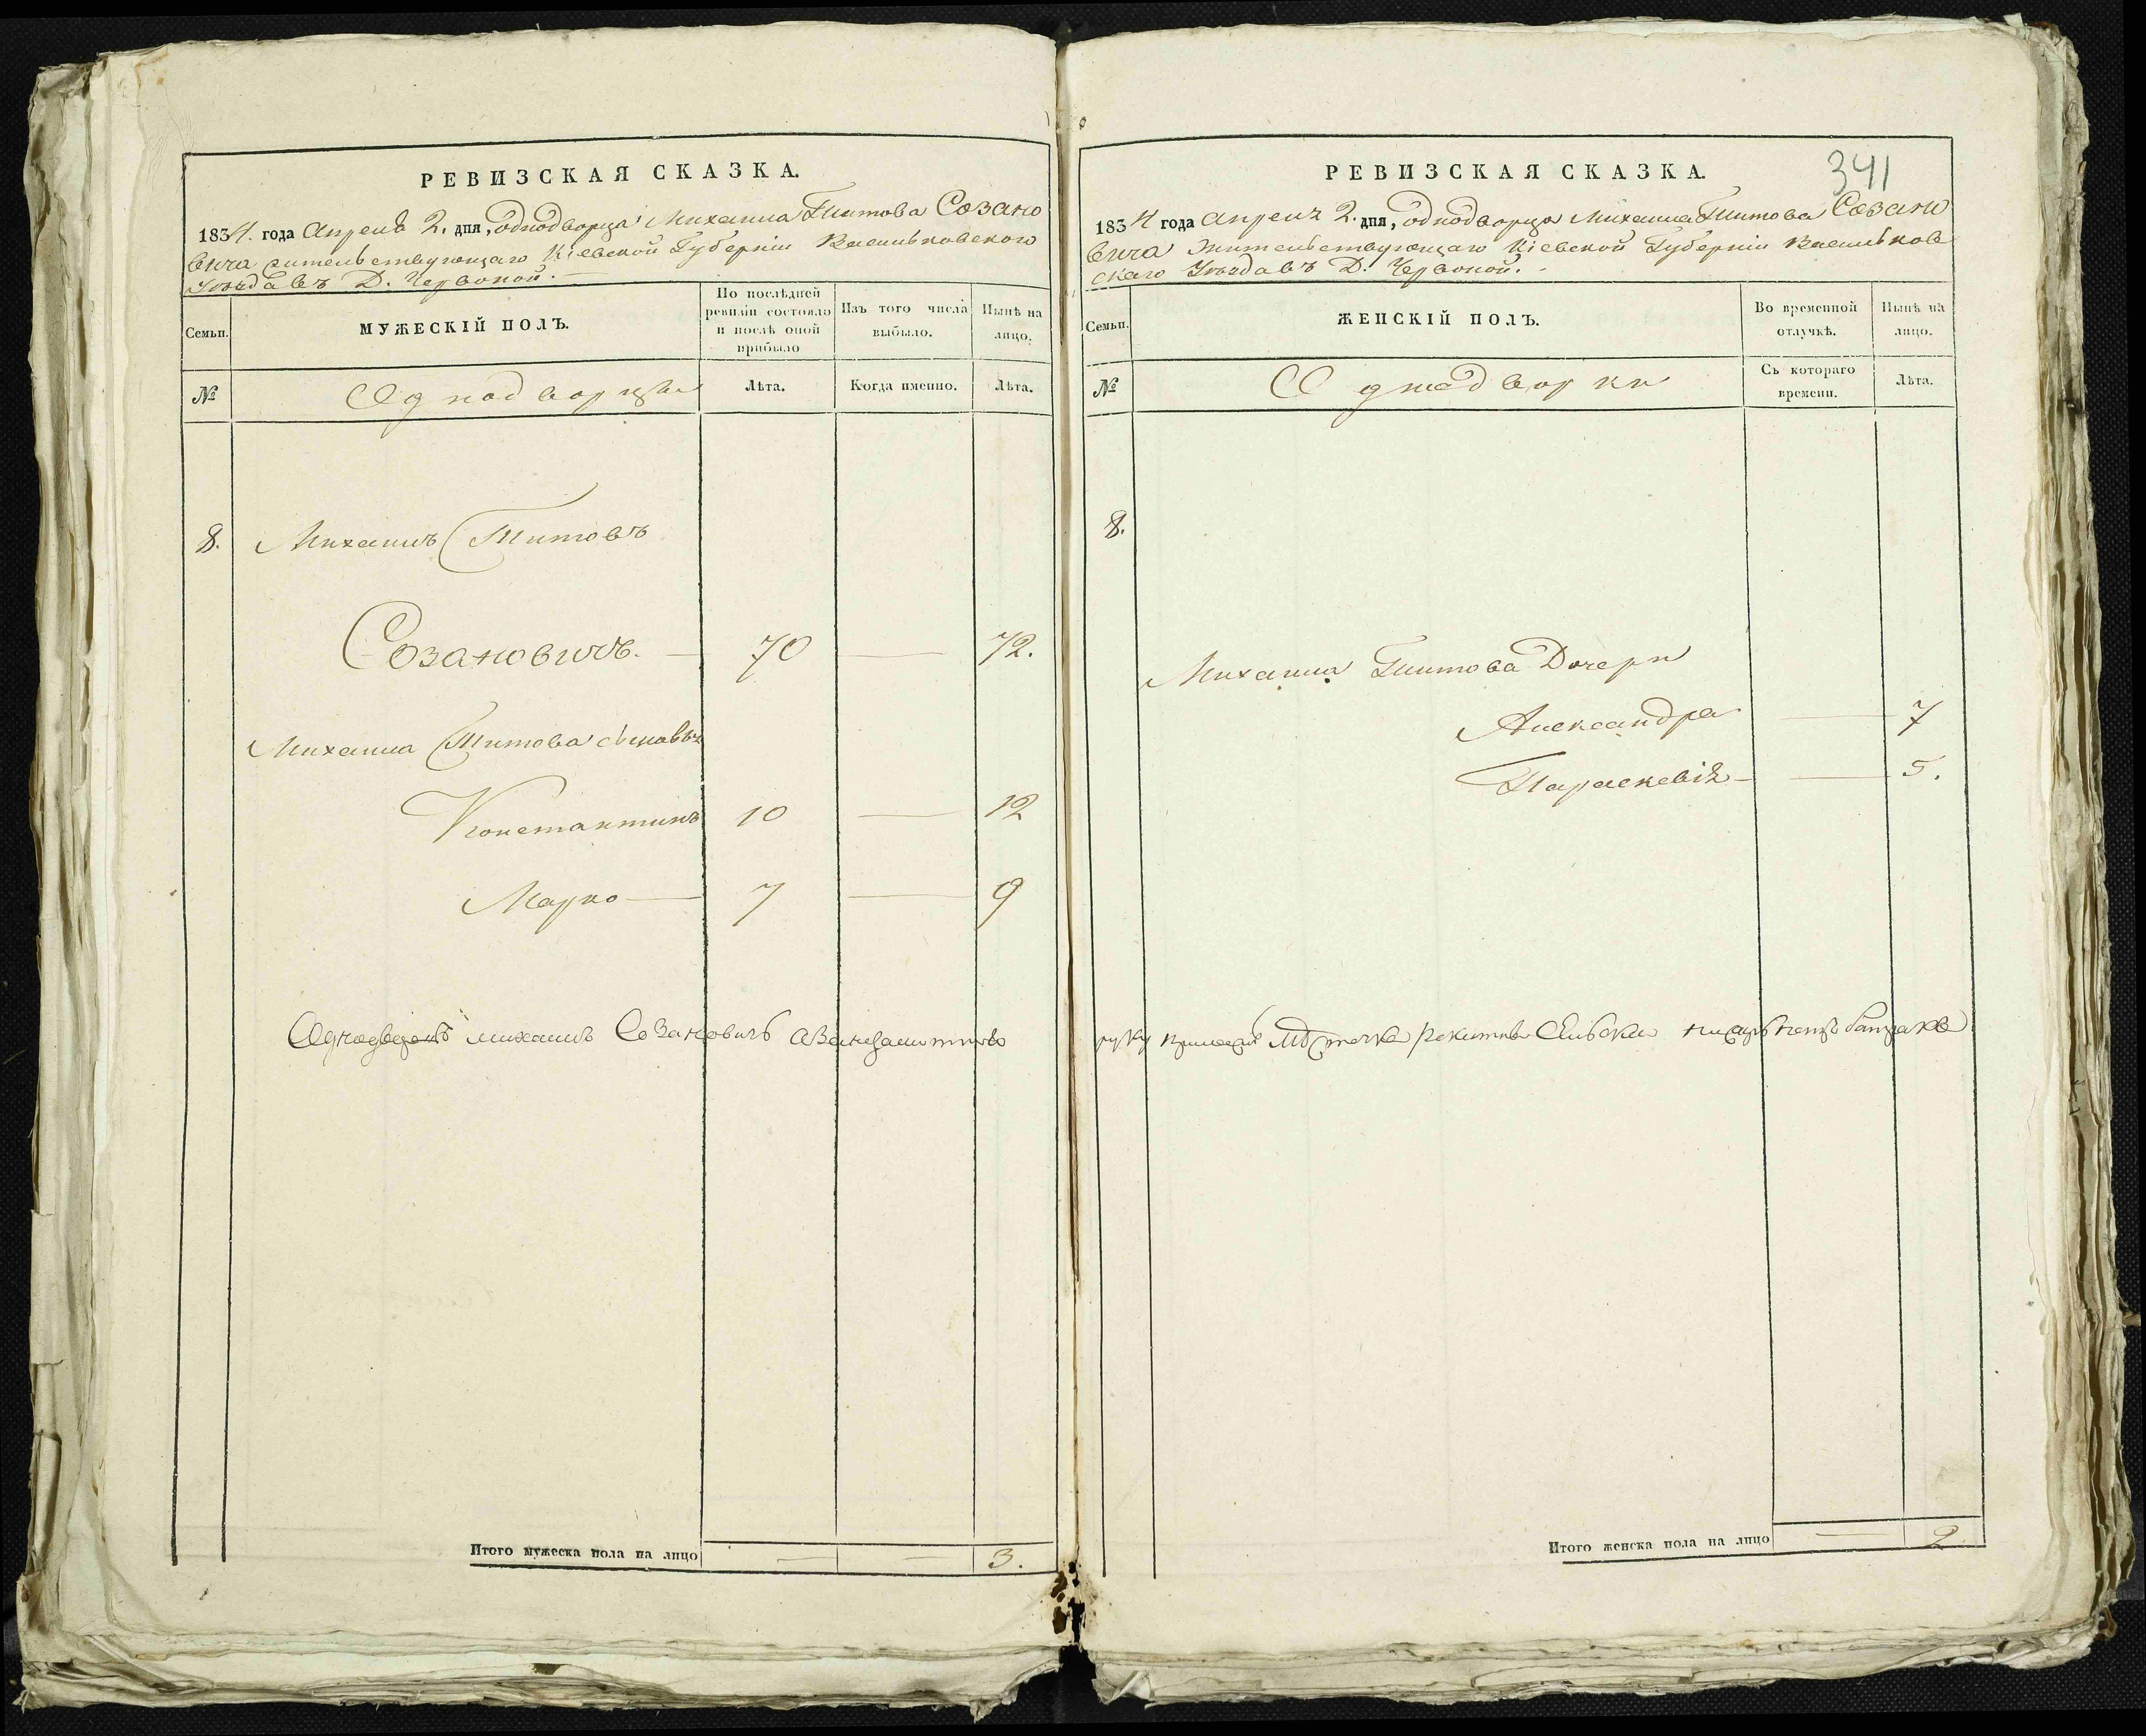 РЕВИЗСКАЯ СКАЗКА.
1834. года Апреля 2. дня, однодворца Михаила Титова Созано
вича жительствующаго Кіевской Губерніи Васильковского
Уезда въ Д. Червоной.
Семьи.
МУЖЕСКІЙ ПОЛЪ.
По послѣдней ревизіи состояло и послѣ оной прибыло
Изъ того числа выбыло.
Нынѣ на лицо.
№
Однодворцы
Лѣта.
Когда именно.
Лѣта.
8. Михаилъ Титовъ
Созановичъ. — 70 — 72.
Михаила Титова сыновья
Константинъ 10 — 12
Марко — 7 — 9
Итого мужеска пола на лицо — — 3.
341
РЕВИЗСКАЯ СКАЗКА.
1834 года Апреля 2. дня, однодворца Михаила Титова Созано
вича жительствующаго Кіевской Губерніи Васильков
скаго Уезда въ Д. Червоной.
Семьи.
ЖЕНСКІЙ ПОЛЪ.
Во временной отлучкѣ.
Нынѣ на лицо.
№
Однодворки
Съ котораго времени.
Лѣта.
8.
Михаила Титова Дочери
Александра — 7
Параскевія — 5.
Однодворецъ михаилъ Созановичъ
руку
Итого женска пола на лицо — 2